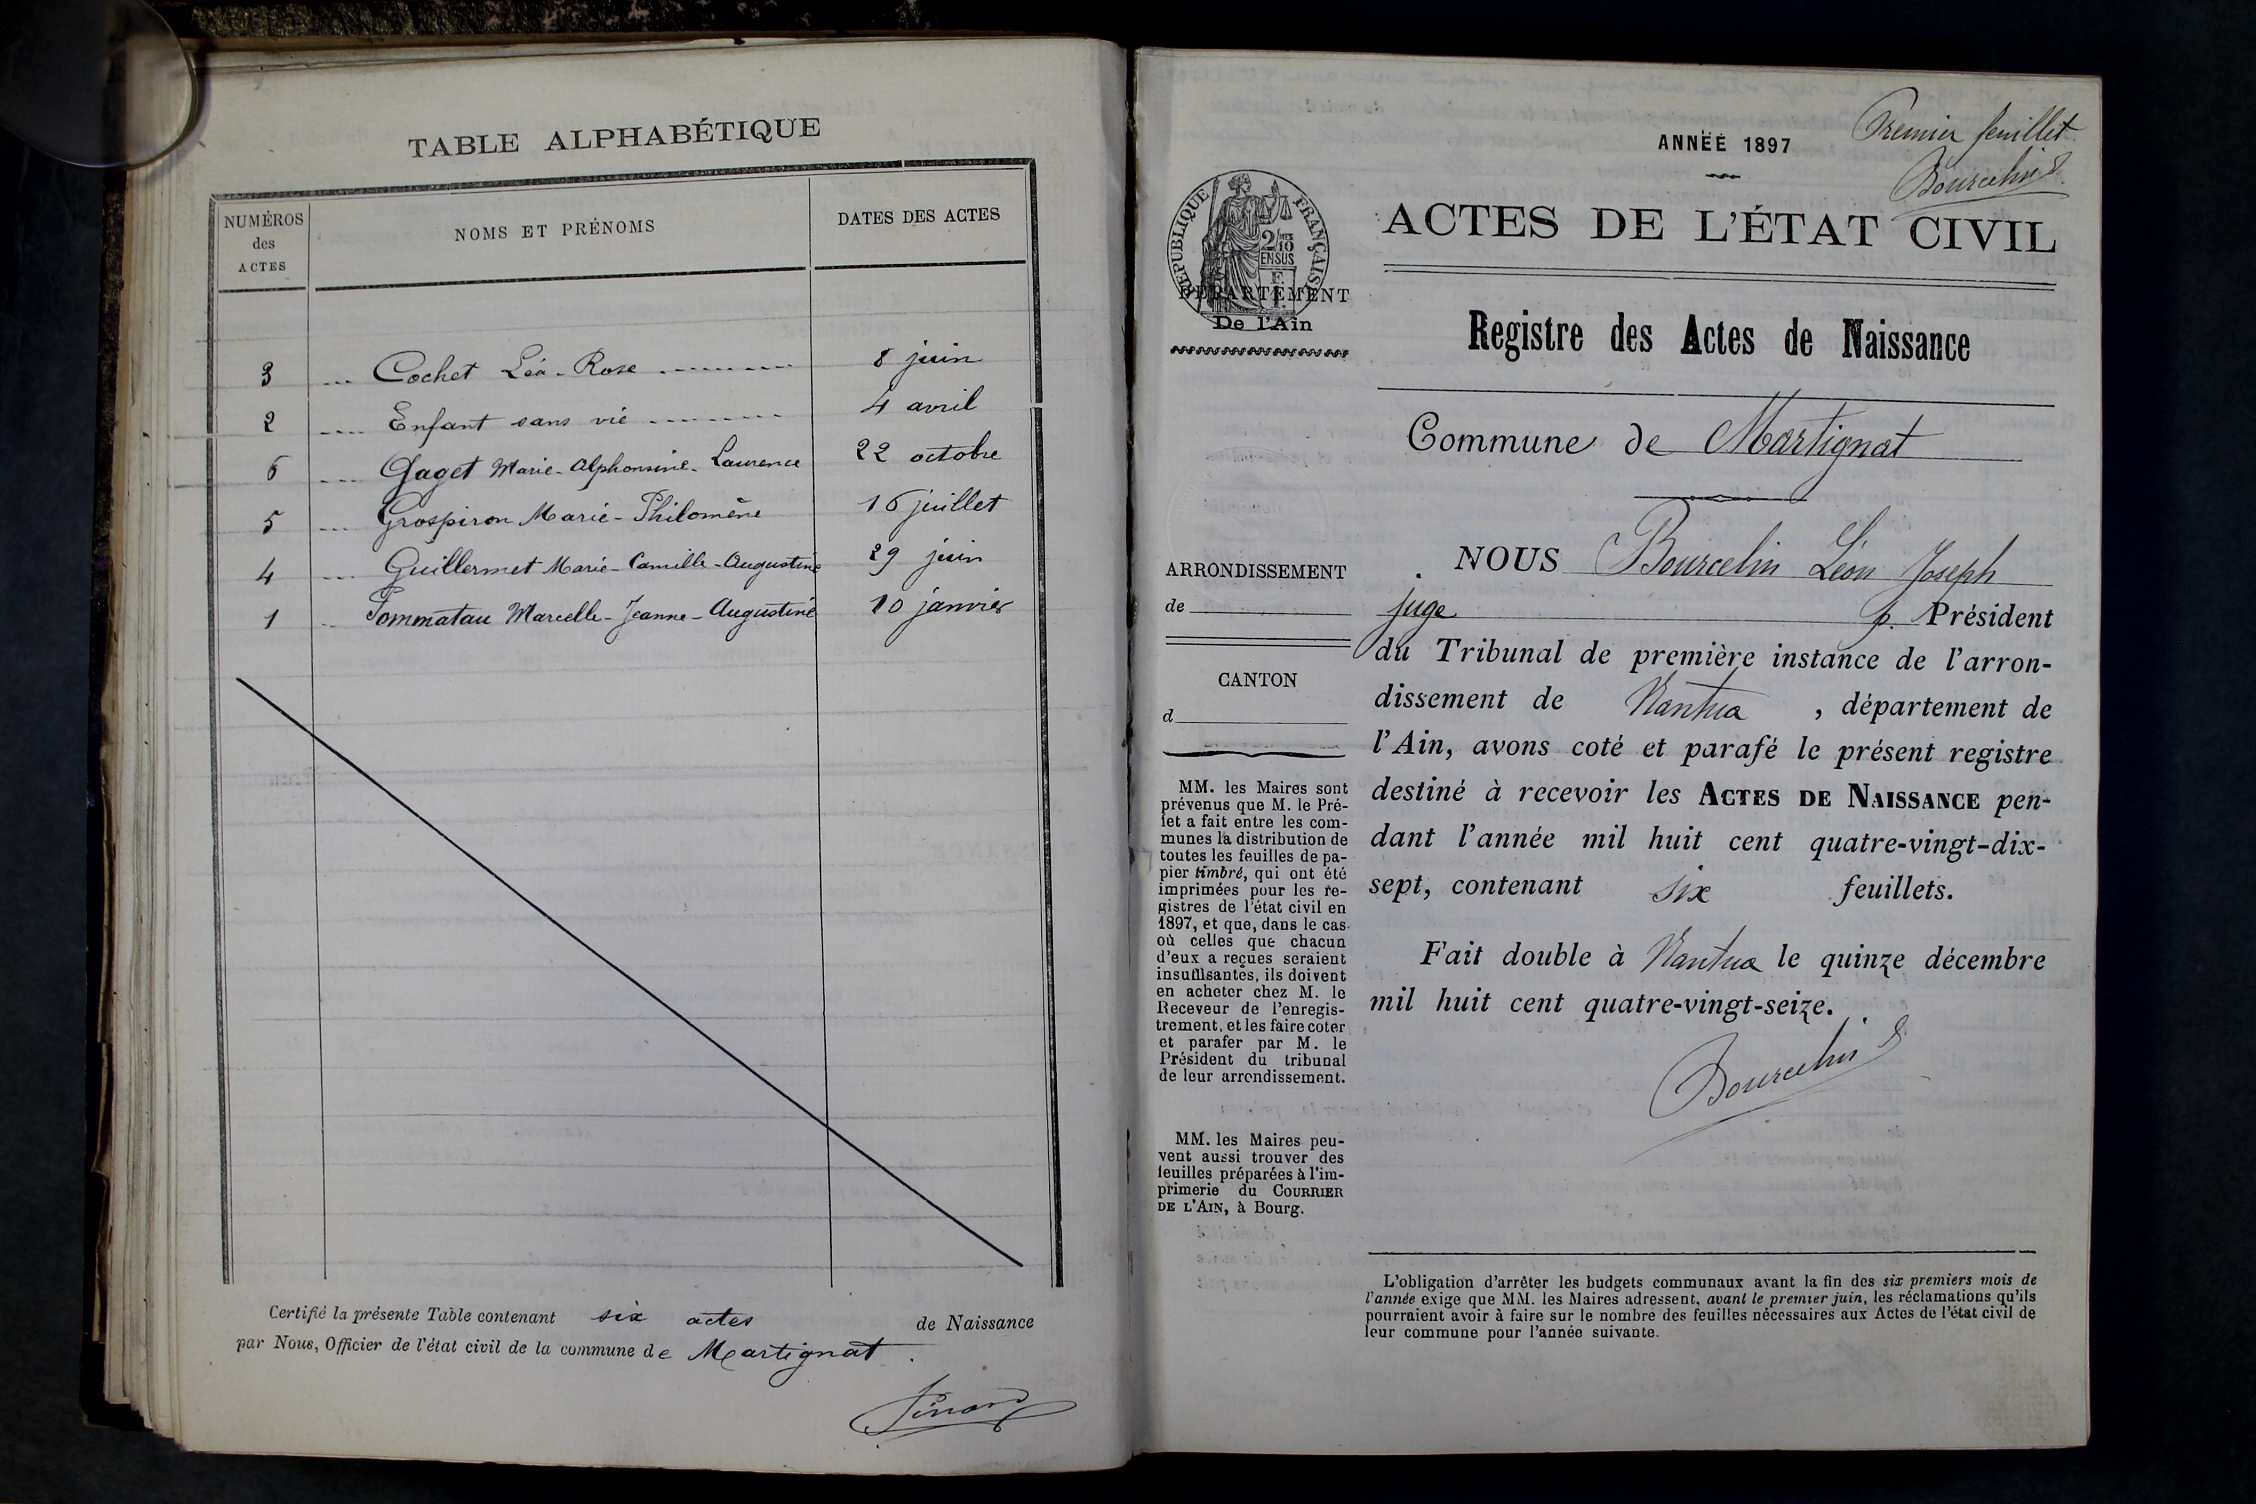 TABLE ALPHABÉTIQUE
NUMÉROS
des
ACTES
NOMS ET PRÉNOMS
DATES DES ACTES
3 ... Cochet Léa-Rose ........ 8 juin
2 .... Enfant sans vie ........ 4 avril
6 .... Gaget Marie-Alphonsine-Laurence 22 octobre
5 ... Grospiron Marie-Philomène 16 juillet
4 ... Guillermet Marie-Camille-Augustine 29 juin
1 .. Pommatau Marcelle-Jeanne-Augustine 10 janvier
Certifié la présente Table contenant six actes de Naissance
par Nous, Officier de l'état civil de la commune de Martignat.
ANNÉE 1897
Premier feuillet
Bourcelin
RÉPUBLIQUE FRANÇAISE
2/10
EN SUS
DÉPARTEMENT
De l'Ain
ACTES DE L'ÉTAT CIVIL
Registre des Actes de Naissance
Commune de Martignat
ARRONDISSEMENT
de
CANTON
d
MM. les Maires sont
prévenus que M. le Pré-
fet a fait entre les com-
munes la distribution de
toutes les feuilles de pa-
pier timbré, qui ont été
imprimées pour les re-
gistres de l'état civil en
1897, et que, dans le cas
où celles que chacun
d'eux a reçues seraient
insuffisantes, ils doivent
en acheter chez M. le
Receveur de l'enregis-
trement, et les faire coter
et parafer par M. le
Président du tribunal
de leur arrondissement.
MM. les Maires peu-
vent aussi trouver des
feuilles préparées à l'im-
primerie du COURRIER
DE L'AIN, à Bourg.
NOUS Bourcelin Léon Joseph
juge p. Président
du Tribunal de première instance de l'arron-
dissement de Nantua, département de
l'Ain, avons coté et parafé le présent registre
destiné à recevoir les ACTES DE NAISSANCE pen-
dant l'année mil huit cent quatre-vingt-dix-
sept, contenant six feuillets.
Fait double à Nantua le quinze décembre
mil huit cent quatre-vingt-seize.
Bourcelin
L'obligation d'arrêter les budgets communaux avant la fin des six premiers mois de
l'année exige que MM. les Maires adressent, avant le premier juin, les réclamations qu'ils
pourraient avoir à faire sur le nombre des feuilles nécessaires aux Actes de l'état civil de
leur commune pour l'année suivante.